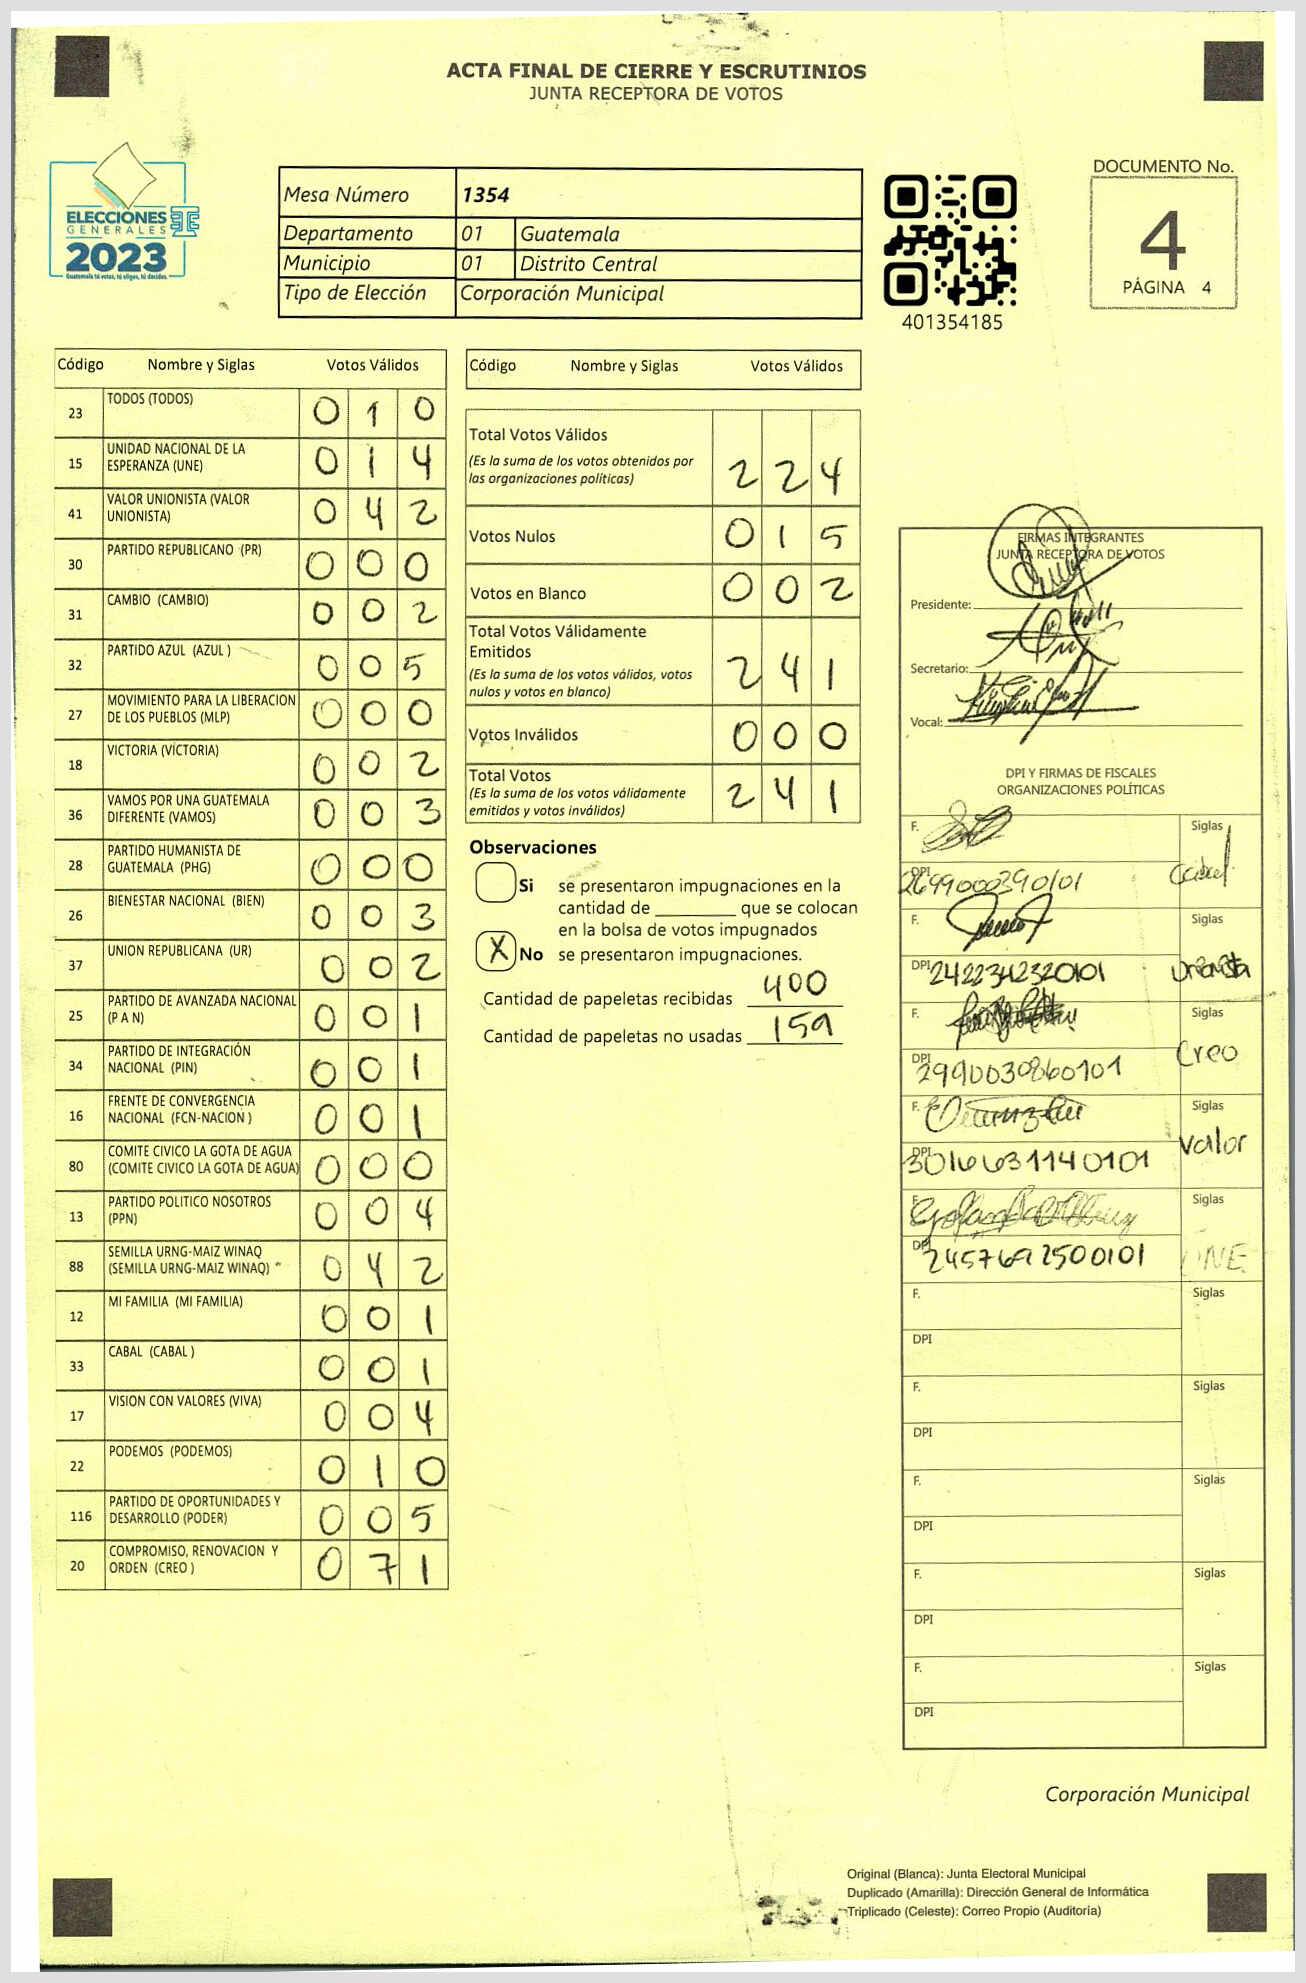 ACTA FINAL DE CIERRE Y ESCRUTINIOS
JUNTA RECEPTORA DE VOTOS
ELECCIONES
GENERALES
2023
Guatemala tú votas, tú eliges, tú decides.
Mesa Número 1354
Departamento 01 Guatemala
Municipio 01 Distrito Central
Tipo de Elección Corporación Municipal
401354185
DOCUMENTO No.
4
PÁGINA 4
Código Nombre y Siglas Votos Válidos
23 TODOS (TODOS) 0 1 0
15 UNIDAD NACIONAL DE LA ESPERANZA (UNE) 0 1 4
41 VALOR UNIONISTA (VALOR UNIONISTA) 0 4 2
30 PARTIDO REPUBLICANO (PR) 0 0 0
31 CAMBIO (CAMBIO) 0 0 2
32 PARTIDO AZUL (AZUL ) 0 0 5
27 MOVIMIENTO PARA LA LIBERACION DE LOS PUEBLOS (MLP) 0 0 0
18 VICTORIA (VICTORIA) 0 0 2
36 VAMOS POR UNA GUATEMALA DIFERENTE (VAMOS) 0 0 3
28 PARTIDO HUMANISTA DE GUATEMALA (PHG) 0 0 0
26 BIENESTAR NACIONAL (BIEN) 0 0 3
37 UNION REPUBLICANA (UR) 0 0 2
25 PARTIDO DE AVANZADA NACIONAL (P A N) 0 0 1
34 PARTIDO DE INTEGRACIÓN NACIONAL (PIN) 0 0 1
16 FRENTE DE CONVERGENCIA NACIONAL (FCN-NACION ) 0 0 1
80 COMITE CIVICO LA GOTA DE AGUA (COMITE CIVICO LA GOTA DE AGUA) 0 0 0
13 PARTIDO POLITICO NOSOTROS (PPN) 0 0 4
88 SEMILLA URNG-MAIZ WINAQ (SEMILLA URNG-MAIZ WINAQ) 0 4 2
12 MI FAMILIA (MI FAMILIA) 0 0 1
33 CABAL (CABAL ) 0 0 1
17 VISION CON VALORES (VIVA) 0 0 4
22 PODEMOS (PODEMOS) 0 1 0
116 PARTIDO DE OPORTUNIDADES Y DESARROLLO (PODER) 0 0 5
20 COMPROMISO, RENOVACION Y ORDEN (CREO ) 0 7 1
Código Nombre y Siglas Votos Válidos
Total Votos Válidos 2 2 4
(Es la suma de los votos obtenidos por
las organizaciones políticas)
Votos Nulos 0 1 5
Votos en Blanco 0 0 2
Total Votos Válidamente
Emitidos 2 4 1
(Es la suma de los votos válidos, votos
nulos y votos en blanco)
Votos Inválidos 0 0 0
Total Votos 2 4 1
(Es la suma de los votos válidamente
emitidos y votos inválidos)
Observaciones
Si se presentaron impugnaciones en la
cantidad de ________ que se colocan
en la bolsa de votos impugnados
X No se presentaron impugnaciones.
Cantidad de papeletas recibidas 400
Cantidad de papeletas no usadas 159
FIRMAS INTEGRANTES
JUNTA RECEPTORA DE VOTOS
Presidente:
Secretario:
Vocal:
DPI Y FIRMAS DE FISCALES
ORGANIZACIONES POLÍTICAS
F. Siglas
DPI 2699000390101 Cabal
F. Siglas
DPI 2422342320101 Unionista
F. Siglas
DPI 2990030860101 Creo
F. Siglas
DPI 3016631140101 valor
F. Siglas
DPI 2457692500101 UNE
F. Siglas
DPI
F. Siglas
DPI
F. Siglas
DPI
F. Siglas
DPI
F. Siglas
DPI
Corporación Municipal
Original (Blanca): Junta Electoral Municipal
Duplicado (Amarilla): Dirección General de Informática
Triplicado (Celeste): Correo Propio (Auditoría)